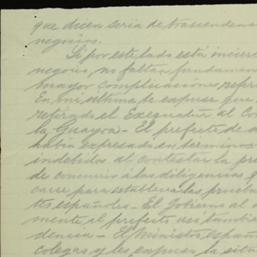 que dicen seria de trascendenc
negocios.
Si por este lado está incier
negocio, no faltan fundamen
mayor complicacione, refer
En mi última le expuse que
refirado el Exequatur al Co
la Guayra - El prefecto de d
habia expresado en terminos
indebidos al contestar la pr
de concurrir á las diligencias q
carse para establecer las prueba
tts españoles - El Gobierno al
mente, el prefecto así tambie
dencia - El Ministro españo
colegas y les expuso la situ